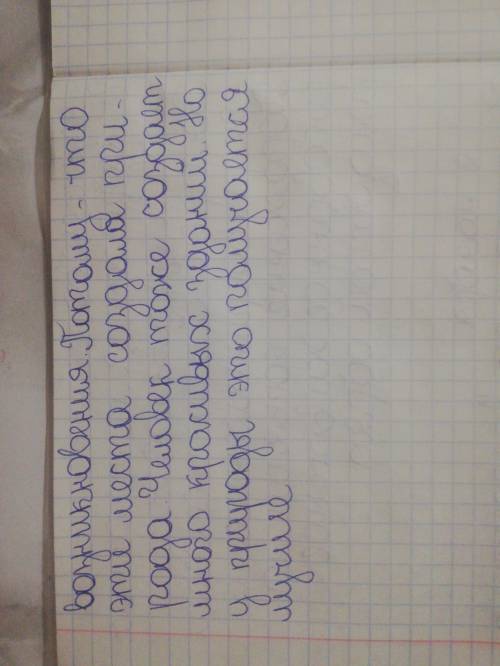 возникновения. Потому - что
эти места создала при-
рода. Человек тоже создает
много красивых зданий. Но
у природы это получается
лучше